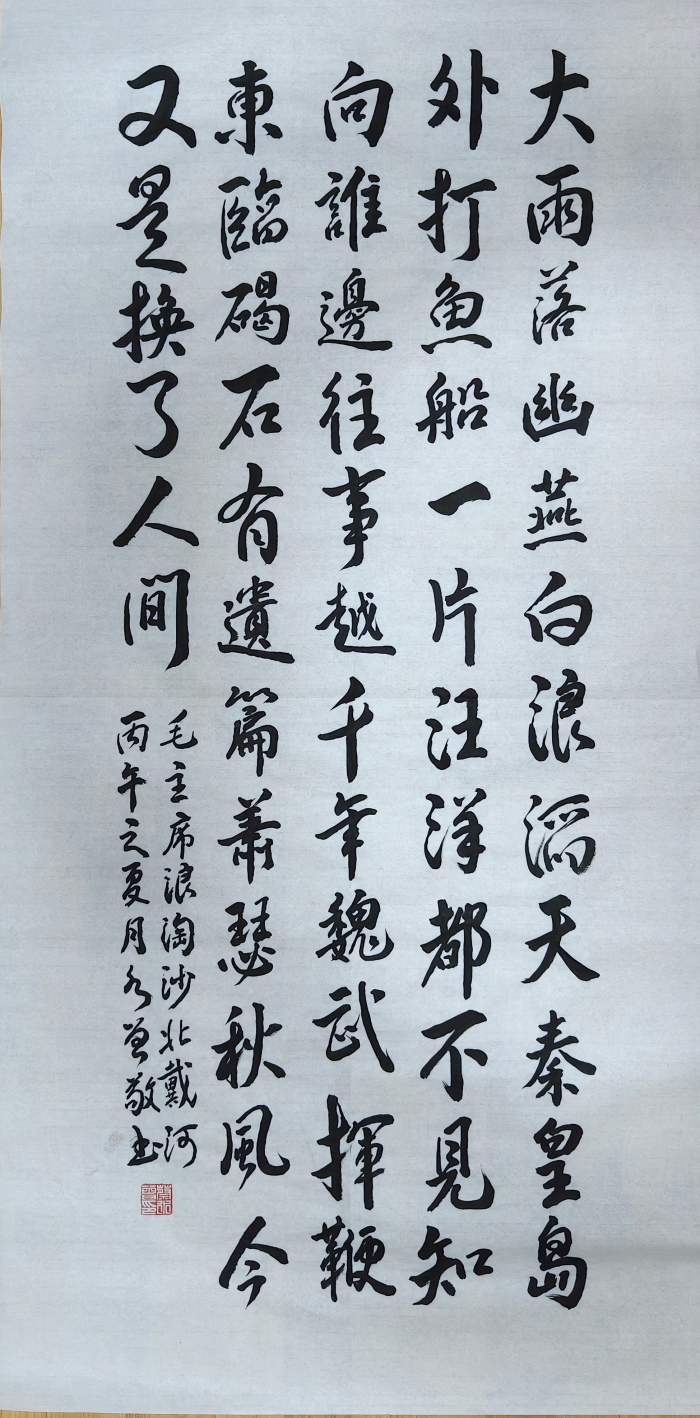 大雨落幽燕白浪滔天秦皇島
外打魚船一片汪洋都不見知
向誰邊往事越千年魏武揮鞭
東臨碣石有遺篇蕭瑟秋風今
又是換了人間
毛主席浪淘沙北戴河
丙午之夏月 敬书